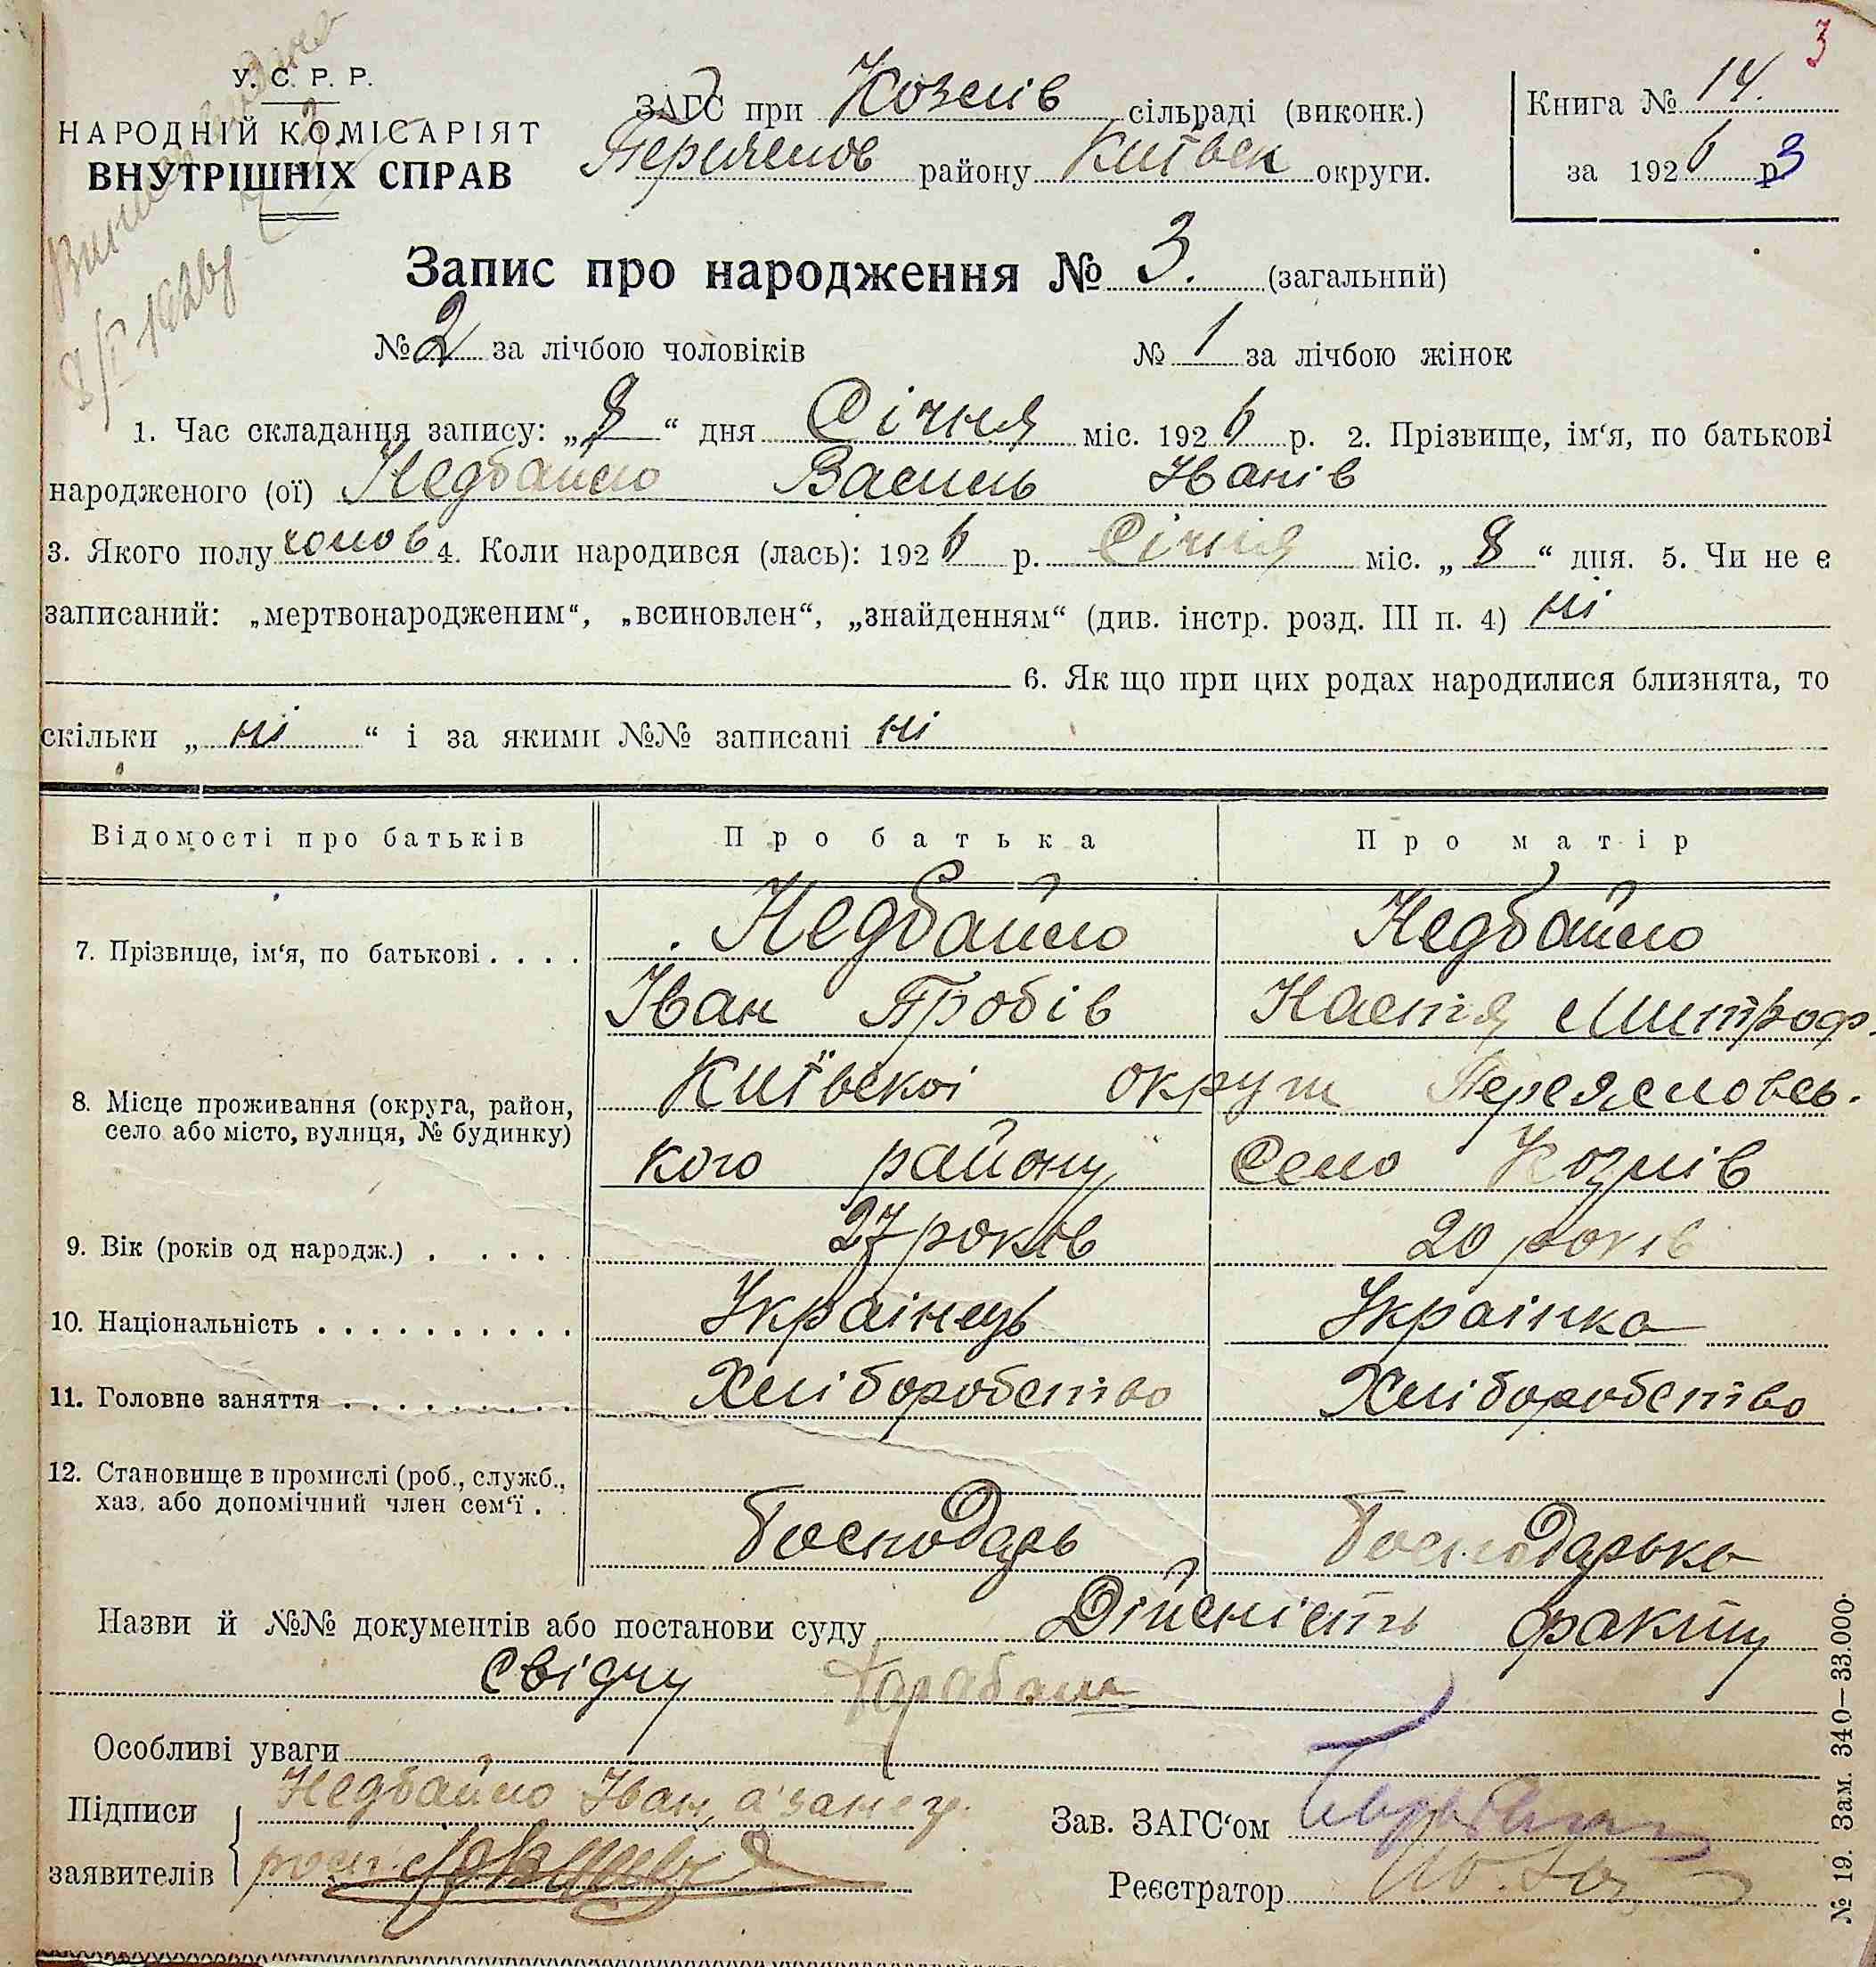 3
У. С. Р. Р.
НАРОДНІЙ КОМІСАРІЯТ
ВНУТРІШНІХ СПРАВ
ЗАГС при Козлів сільраді (виконк.)
Переяслов району Київськ округи.
Книга № 14.
за 1926 р. 3
8/I 1926р
Запис про народження № 3. (загальний)
№ 2 за лічбою чоловіків № 1 за лічбою жінок
1. Час складання запису: „8“ дня Січня міс. 1926 р. 2. Прізвище, ім‘я, по батькові
народженого (ої) Недбайло Василь Іванів
3. Якого полу чолов 4. Коли народився (лась): 1926 р. Січня міс. „8“ дня. 5. Чи не є
записаний: „мертвонародженим“, „всиновлен“, „знайденням“ (див. інстр. розд. III п. 4) ні
6. Як що при цих родах народилися близнята, то
скільки „ні“ і за якими №№ записані ні
Відомості про батьків Про батька Про матір
7. Прізвище, ім‘я, по батькові . . . . Недбайло Недбайло
Іван Пробів Настя Митроф.
8. Місце проживання (округа, район, село або місто, вулиця, № будинку) Київської округи Переясловсь-
кого району Село Козлів
9. Вік (років од народж.) . . . . 27 років 20 років
10. Національність . . . . . . . . . . Українець Українка
11. Головне заняття . . . . . . . . . Хліборобство Хліборобство
12. Становище в промислі (роб., служб.,
хаз. або допомічний член сем‘ї . . Господарь Господарька
Назви й №№ документів або постанови суду Дійсність факту
свідчу
Особливі уваги
Підписи Недбайло Іван, а за неп.
заявителів розп.
Зав. ЗАГС‘ом
Реєстратор
№ 19. Зам. 340—33.000.